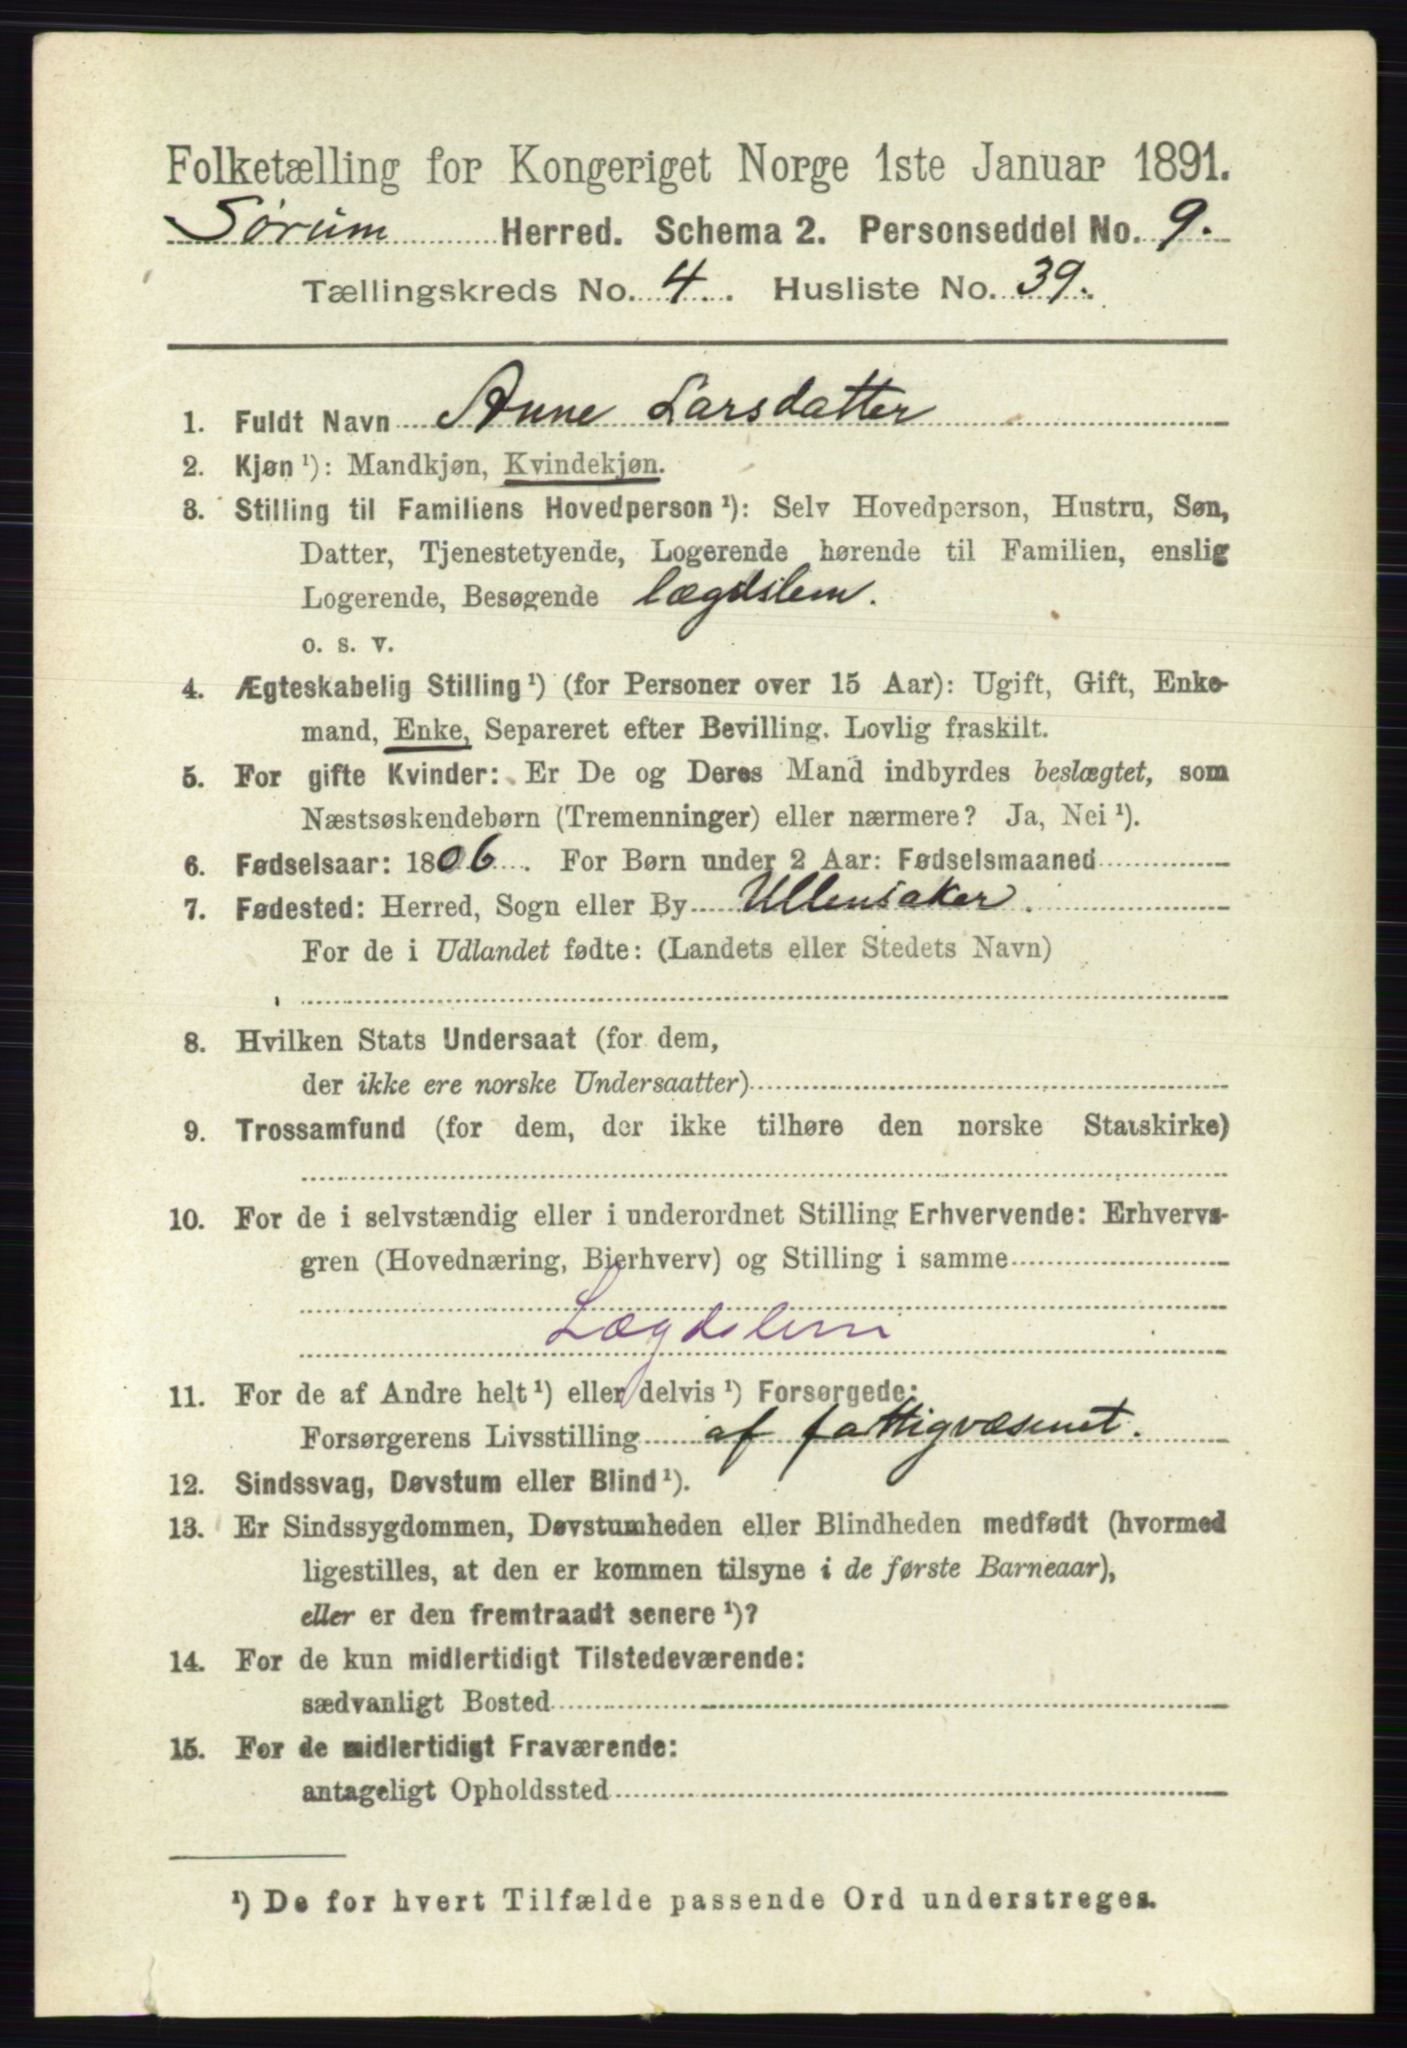 Folketælling for Kongeriget Norge 1ste Januar 1891.
Sørum Herred. Schema 2. Personseddel No. 9.
Tællingskreds No. 4. Husliste No. 39.
1. Fuldt Navn Anne Larsdatter
2. Kjøn ¹): Mandkjøn, Kvindekjøn.
3. Stilling til Familiens Hovedperson ¹): Selv Hovedperson, Hustru, Søn,
Datter, Tjenestetyende, Logerende hørende til Familien, enslig
Logerende, Besøgende lægdslem.
o. s. v.
4. Ægteskabelig Stilling ¹) (for Personer over 15 Aar): Ugift, Gift, Enke-
mand, Enke, Separeret efter Bevilling. Lovlig fraskilt.
5. For gifte Kvinder: Er De og Deres Mand indbyrdes beslægtet, som
Næstsøskendebørn (Tremenninger) eller nærmere? Ja, Nei ¹).
6. Fødselsaar: 1806. For Børn under 2 Aar: Fødselsmaaned
7. Fødested: Herred, Sogn eller By Ullensaker.
For de i Udlandet fødte: (Landets eller Stedets Navn)
8. Hvilken Stats Undersaat (for dem,
der ikke ere norske Undersaatter)
9. Trossamfund (for dem, der ikke tilhøre den norske Statskirke)
10. For de i selvstændig eller i underordnet Stilling Erhvervende: Erhvervs-
gren (Hovednæring, Bierhverv) og Stilling i samme
Lægdslem
11. For de af Andre helt ¹) eller delvis ¹) Forsørgede:
Forsørgerens Livsstilling af fattigvæsenet.
12. Sindssvag, Døvstum eller Blind ¹).
13. Er Sindssygdommen, Døvstumheden eller Blindheden medfødt (hvormed
ligestilles, at den er kommen tilsyne i de første Barneaar),
eller er den fremtraadt senere ¹)?
14. For de kun midlertidigt Tilstedeværende:
sædvanligt Bosted
15. For de midlertidigt Fraværende:
antageligt Opholdssted
¹) De for hvert Tilfælde passende Ord understreges.